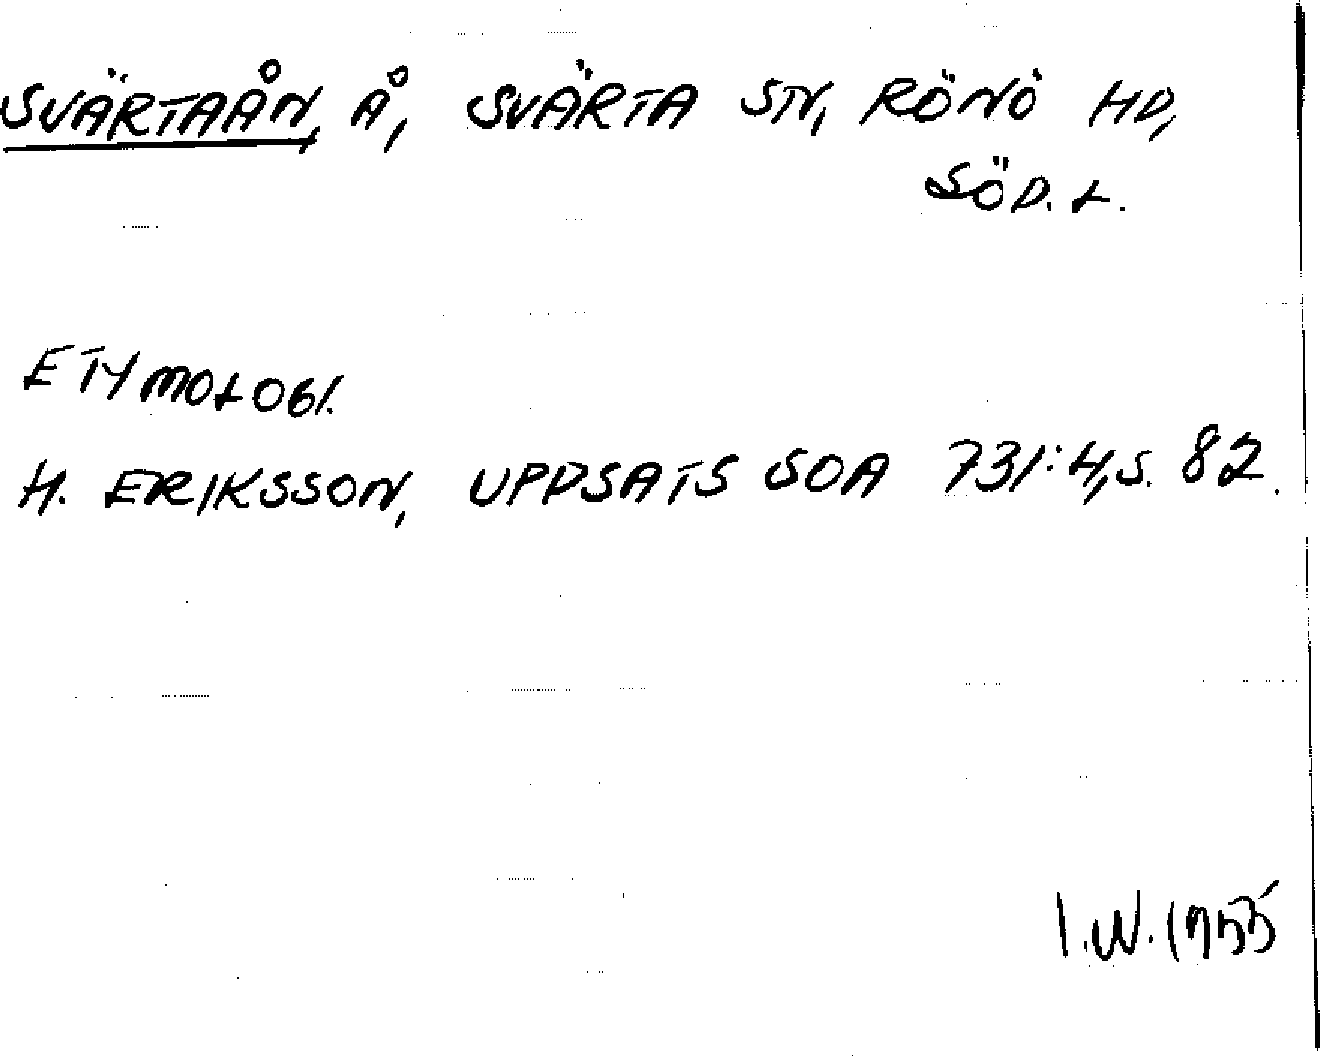 SVÄRTAÅN, Å, SVÄRTA SN, RÖNÖ HD,
SÖD. L.
ETYMOLOGI.
H. ERIKSSON, UPPSATS SOA 731:4, S. 82.
I.W. 1955